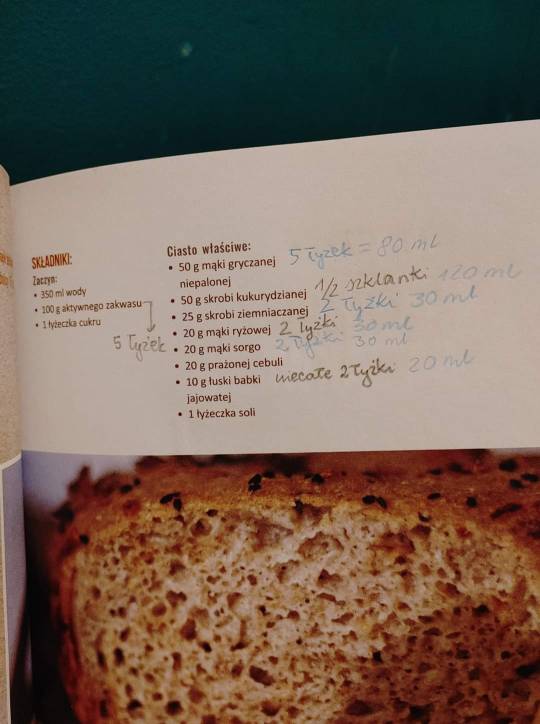 SKŁADNIKI:
Zaczyn:
• 350 ml wody
• 100 g aktywnego zakwasu
• 1 łyżeczka cukru
5 łyżek
Ciasto właściwe:
• 50 g mąki gryczanej 5 łyżek = 80 ml
niepalonej
• 50 g skrobi kukurydzianej 1/2 szklanki 120 ml
• 25 g skrobi ziemniaczanej 2 łyżki 30 ml
• 20 g mąki ryżowej 2 łyżki 30 ml
• 20 g mąki sorgo 2 łyżki 30 ml
• 20 g prażonej cebuli
• 10 g łuski babki niecałe 2 łyżki 20 ml
jajowatej
• 1 łyżeczka soli